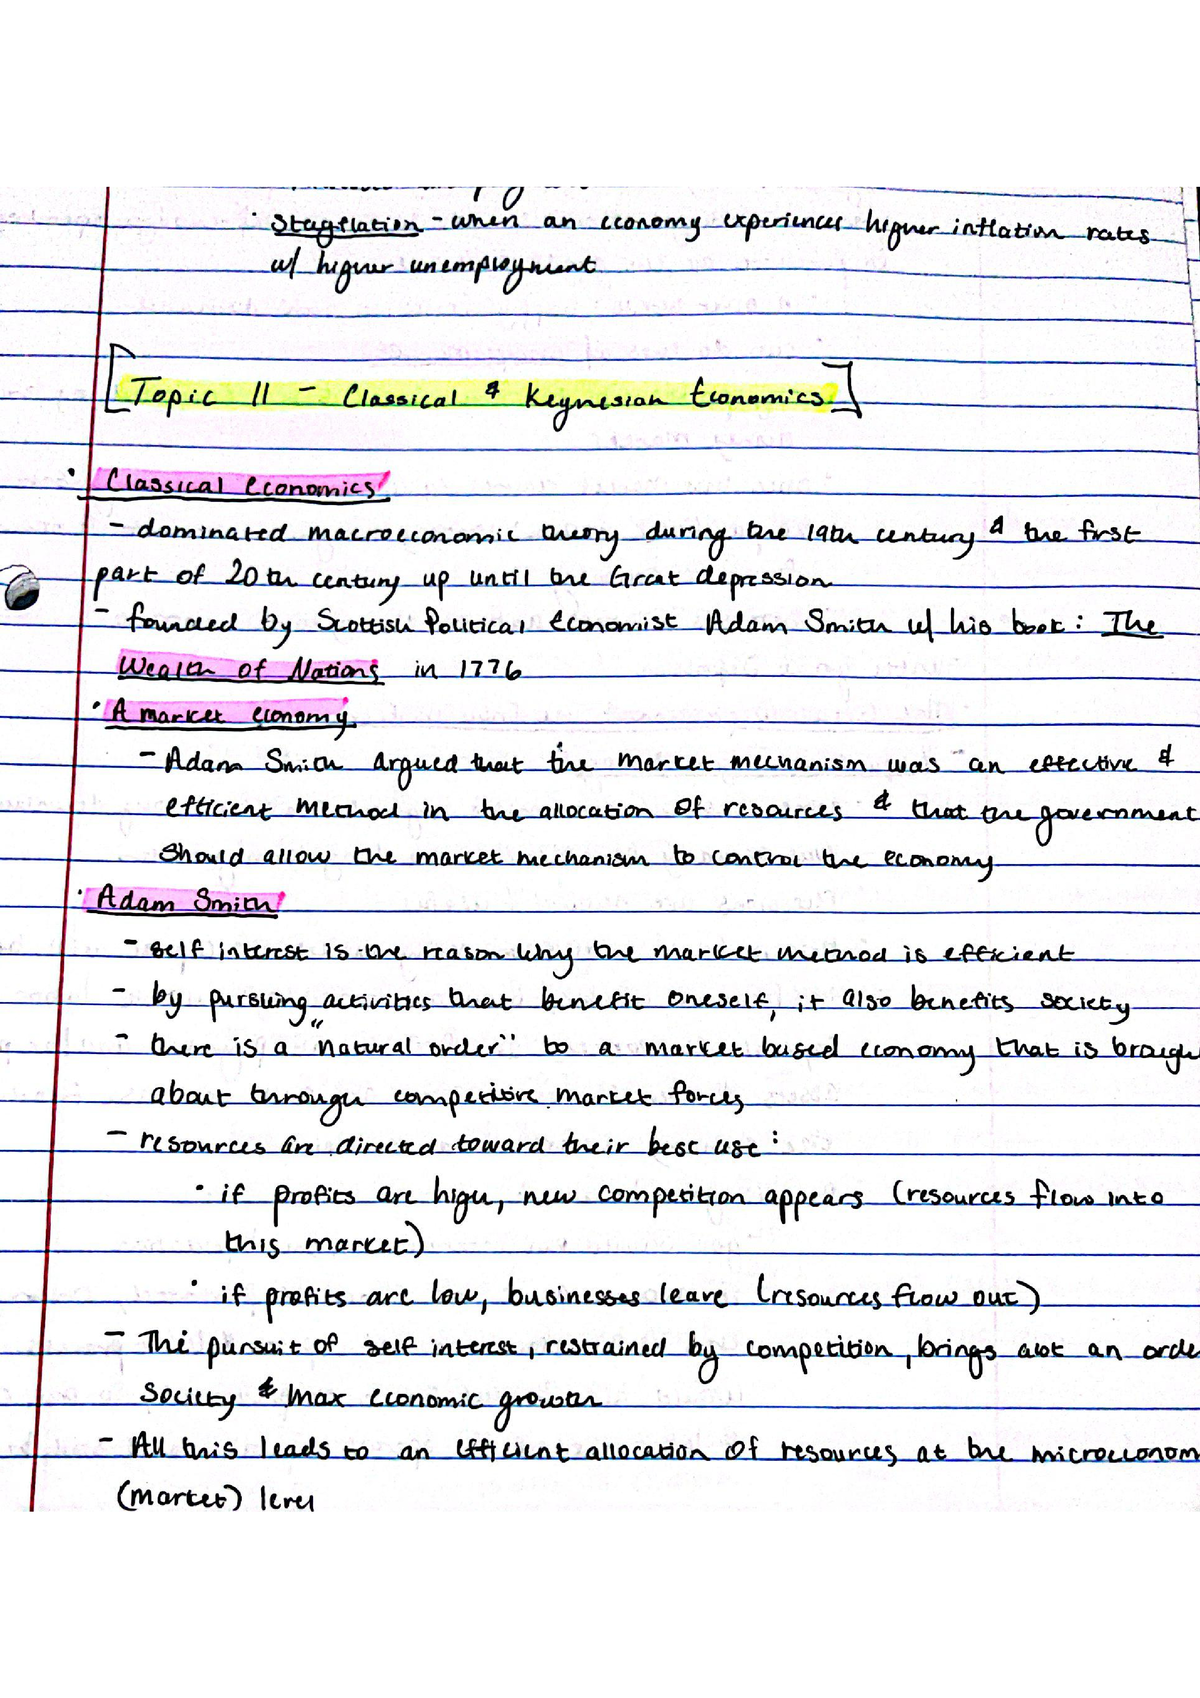 · Stagflation - when an economy experiences higher inflation rates
w/ higher unemployment
[Topic 11 - Classical & Keynesian Economics]
· Classical economics
- dominated macroeconomic theory during the 19th century & the first
part of 20th century up until the Great depression
- founded by Scottish Political Economist Adam Smith w/ his book: The
Wealth of Nations in 1776
· A market economy
- Adam Smith argued that the market mechanism was an effective &
efficient method in the allocation of resources & that the government
should allow the market mechanism to control the economy
· Adam Smith
- self interest is the reason why the market method is efficient
- by pursuing activities that benefit oneself, it also benefits society
- there is a "natural order" to a market based economy that is brough
about through competitive market forces
- resources are directed toward their best use:
· if profits are high, new competition appears (resources flow into
this market)
· if profits are low, businesses leave (resources flow out)
- The pursuit of self interest, restrained by competition, brings abt an orde
society & max economic growth
- All this leads to an efficient allocation of resources at the microeconom
(market) level